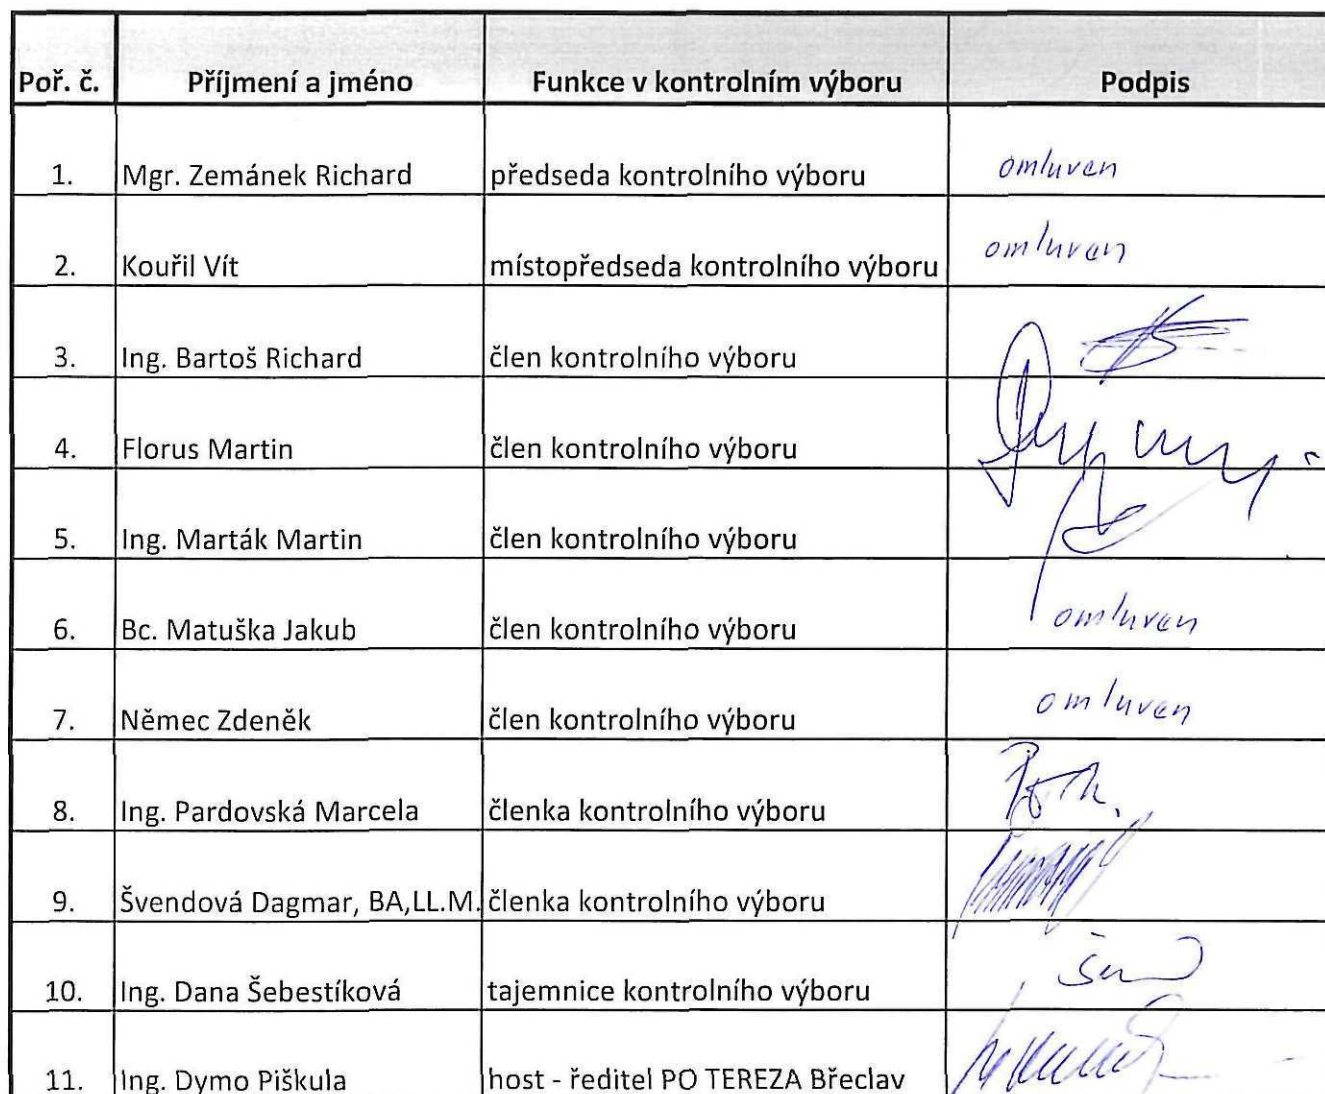 Poř. č. Příjmení a jméno Funkce v kontrolním výboru Podpis
1. Mgr. Zemánek Richard předseda kontrolního výboru omluven
2. Kouřil Vít místopředseda kontrolního výboru omluven
3. Ing. Bartoš Richard člen kontrolního výboru
4. Florus Martin člen kontrolního výboru
5. Ing. Marták Martin člen kontrolního výboru
6. Bc. Matuška Jakub člen kontrolního výboru omluven
7. Němec Zdeněk člen kontrolního výboru omluven
8. Ing. Pardovská Marcela členka kontrolního výboru
9. Švendová Dagmar, BA,LL.M. členka kontrolního výboru
10. Ing. Dana Šebestíková tajemnice kontrolního výboru
11. Ing. Dymo Piškula host - ředitel PO TEREZA Břeclav